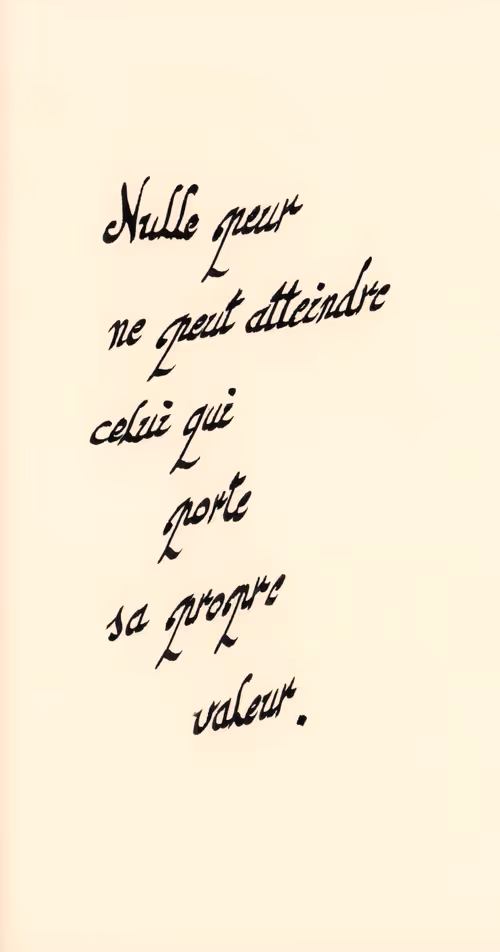 Nulle peur
ne peut atteindre
celui qui
porte
sa propre
valeur.